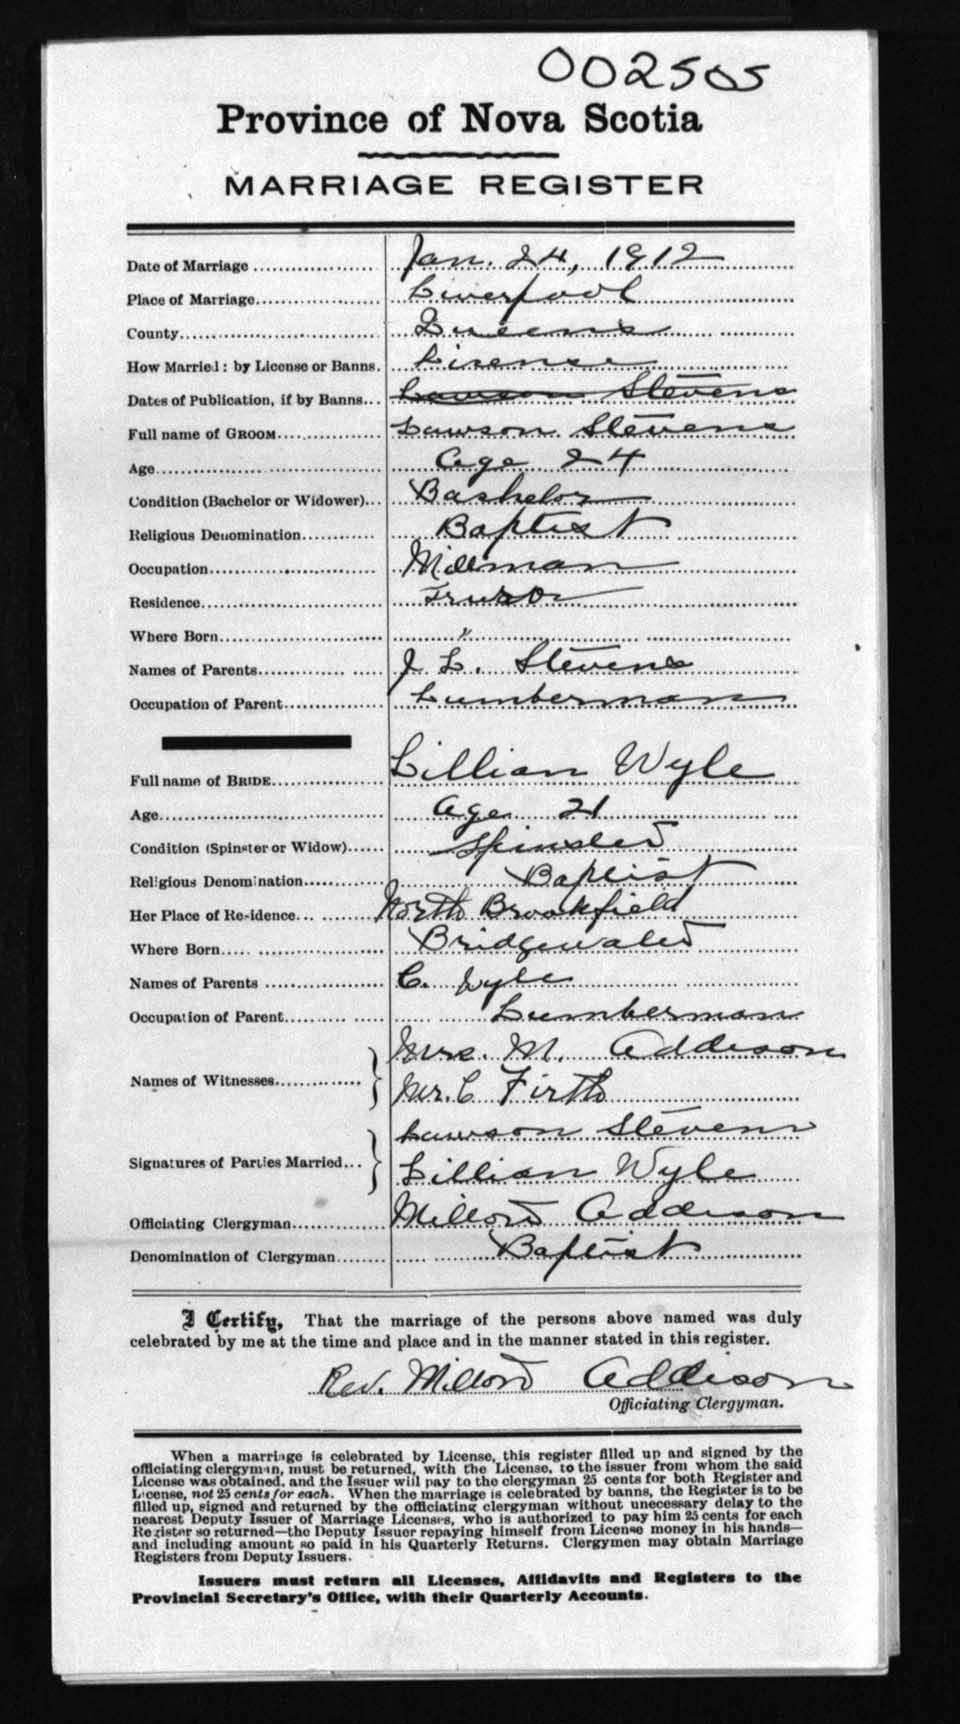 002505
Province of Nova Scotia
MARRIAGE REGISTER
Date of Marriage Jan. 24, 1912
Place of Marriage Liverpool
County Queens
How Married: by License or Banns. License
Dates of Publication, if by Banns Lawson Stevens
Full name of GROOM Lawson Stevens
Age Age 24
Condition (Bachelor or Widower) Bachelor
Religious Denomination Baptist
Occupation Millman
Residence Truro
Where Born "
Names of Parents J L. Stevens
Occupation of Parent Lumberman
Full name of BRIDE Lillian Wyle
Age Age 21
Condition (Spinster or Widow) Spinster
Religious Denomination Baptist
Her Place of Residence North Brookfield
Where Born Bridgewater
Names of Parents C. Wyle
Occupation of Parent Lumberman
Mrs. M. Addison
Names of Witnesses Mr. C Firth
Lawson Stevens
Signatures of Parties Married Lillian Wyle
Officiating Clergyman Millord Addison
Denomination of Clergyman Baptist
I Certify, That the marriage of the persons above named was duly
celebrated by me at the time and place and in the manner stated in this register.
Rev. Millord Addison
Officiating Clergyman.
When a marriage is celebrated by License, this register filled up and signed by the
officiating clergyman, must be returned, with the License, to the issuer from whom the said
License was obtained, and the Issuer will pay to the clergyman 25 cents for both Register and
License, not 25 cents for each. When the marriage is celebrated by banns, the Register is to be
filled up, signed and returned by the officiating clergyman without unnecessary delay to the
nearest Deputy Issuer of Marriage Licenses, who is authorized to pay him 25 cents for each
Register so returned—the Deputy Issuer repaying himself from License money in his hands—
and including amount so paid in his Quarterly Returns. Clergymen may obtain Marriage
Registers from Deputy Issuers.
Issuers must return all Licenses, Affidavits and Registers to the
Provincial Secretary's Office, with their Quarterly Accounts.